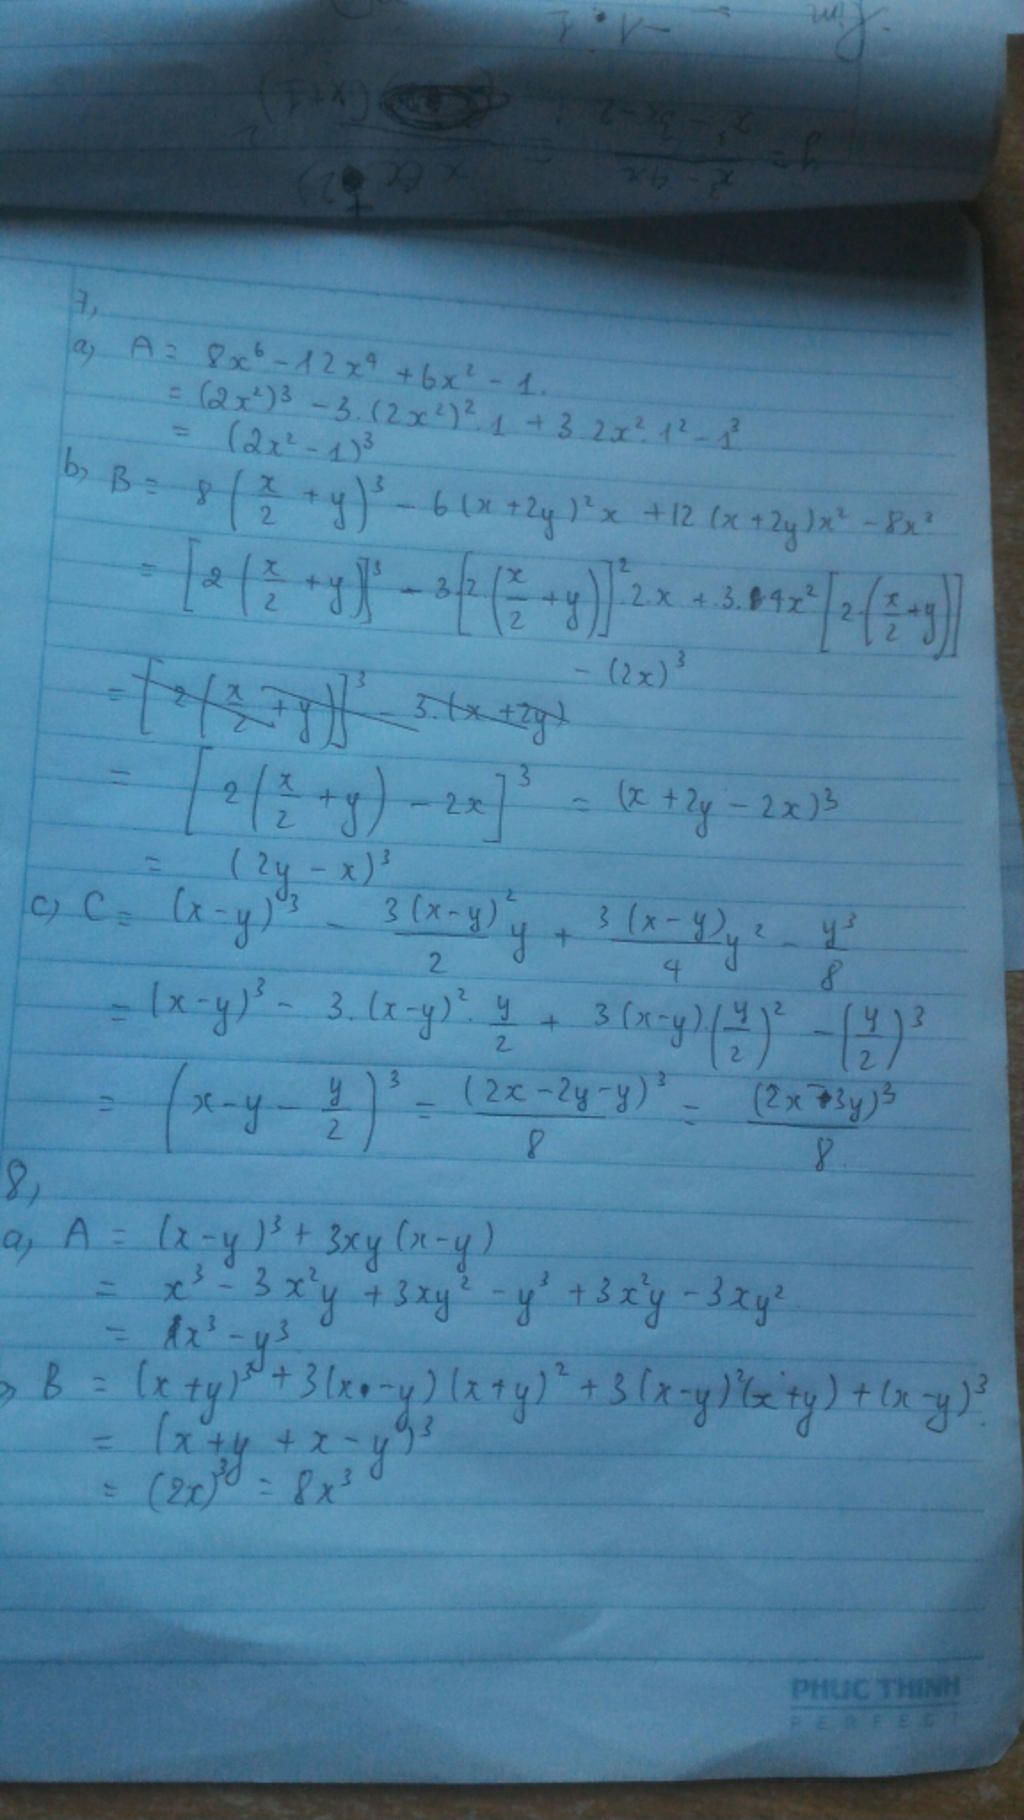 7,
a, A = 8x⁶ - 12x⁴ + 6x² - 1.
= (2x²)³ - 3.(2x²)².1 + 3.2x².1² - 1³
= (2x² - 1)³
b, B = 8(x/2 + y)³ - 6(x + 2y)²x + 12(x + 2y)x² - 8x³
= [2(x/2 + y)]³ - 3[2.(x/2 + y)]².2.x + 3.4x²[2.(x/2 + y)]
- (2x)³
= [2(x/2 + y)]³ - 3.(x + 2y)
= [2(x/2 + y) - 2x]³ = (x + 2y - 2x)³
= (2y - x)³
c, C = (x - y)³ - 3(x - y)²/2 y + 3(x - y)/4 y² - y³/8
= (x - y)³ - 3.(x - y)².y/2 + 3(x - y).(y/2)² - (y/2)³
= (x - y - y/2)³ = (2x - 2y - y)³/8 = (2x - 3y)³/8
8,
a, A = (x - y)³ + 3xy(x - y)
= x³ - 3x²y + 3xy² - y³ + 3x²y - 3xy²
= x³ - y³
B = (x + y)³ + 3(x - y)(x + y)² + 3(x - y)²(x + y) + (x - y)³
= (x + y + x - y)³
= (2x)³ = 8x³
PHUC THINH
PERFECT